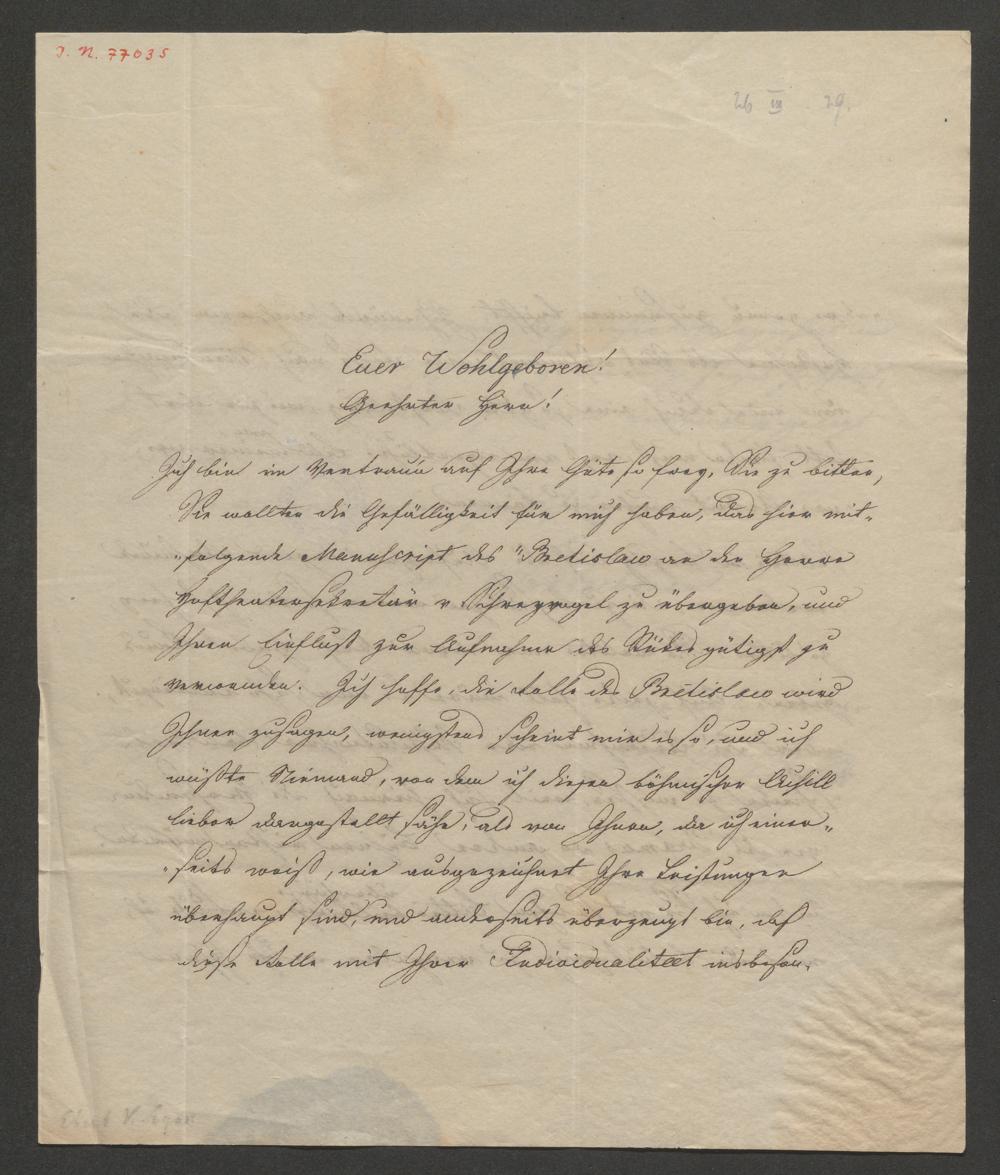 J. N. 77035
26 III. 29.
Euer Wohlgeboren!
Geehrter Herr!
Ich bin im Vertrauen auf Ihre Güte so frey, Sie zu bitten,
Sie wollten die Gefälligkeit für mich haben, das hier mit-
-folgende Manuscript des "Bretislaw an den Herrn
Hoftheatersekretär v Schreyvogel zu übergeben, und
Ihren Einfluß zur Aufnahme des Stückes gütigst zu
verwenden. Ich hoffe, die Rolle des Bretislaw wird
Ihnen zusagen, wenigstens scheint mir es so, und ich
wüßte Niemand, von dem ich diesen böhmischen Achill
lieber dargestellt sähe, als von Ihnen, da ich einer-
-seits weiß, wie ausgezeichnet Ihre Leistungen
überhaupt sind, und anderseits überzeugt bin, daß
diese Rolle mit Ihrer Individualitaet insbeson-
Ebert K. Egon